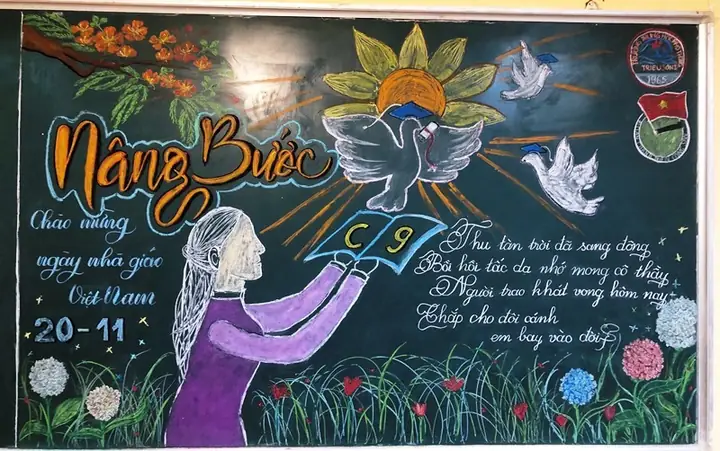 Nâng Bước
Chào mừng
ngày nhà giáo
Việt Nam
20-11
C 9
Thu tàn trời đã sang đông
Bồi hồi tấc dạ nhớ mong cô thầy
Người trao khát vọng hôm nay
Chắp cho đôi cánh
em bay vào đời
TRIỆU SƠN 1
1965